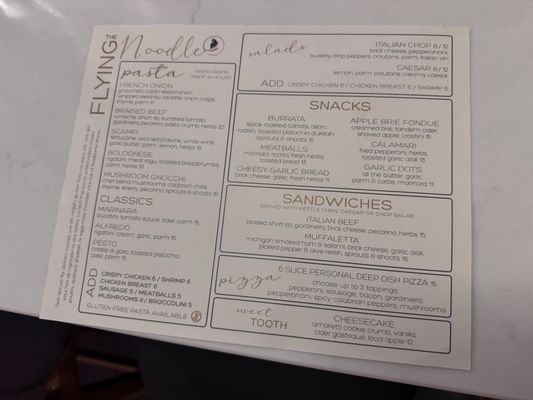 THE
FLYING
Noodle
pasta
FRESH PASTA
MADE IN HOUSE
FRENCH ONION
gnocchetti, caramelized onion,
whipped onion crisps,
thyme, parm 17
BRAISED BEEF
lumache, short rib, sundried tomato
giardiniera, pecorino, pasta crumb, herbs 20
SCAMPI
fettuccine, wild red prawns, white wine,
garlic butter, parm, lemon, herbs
BOLOGNESE
rigatoni, meat ragu, toasted breadcrumbs,
parm, herbs 18
MUSHROOM GNOCCHI
chef blend mushrooms, calabrian chilis,
thyme, sherry, pecorino, sprouts & shoots
CLASSICS
MARINARA
bucatini, tomato sauce, basil, parm 15
ALFREDO
rigatoni, cream, garlic, parm 15
PESTO
creste di gallo, toasted pistachio,
basil, parm 15
ADD
CRISPY CHICKEN 6 / SHRIMP 6
CHICKEN BREAST 6
SAUSAGE 5 / MEATBALLS 5
MUSHROOMS 4 / BROCCOLINI 5
GLUTEN FREE PASTA AVAILABLE
salads
ITALIAN CHOP 8 / 12
brick cheese, pepperoncini,
sweety drop peppers, croutons, parm, italian vin
CAESAR 8 / 12
lemon, parm, croutons, creamy caesar
ADD CRISPY CHICKEN 6 / CHICKEN BREAST 6 / SHRIMP 6
SNACKS
BURRATA
spice roasted carrots, dijon,
radish, toasted pistachio dukkah,
sprouts & shoots 16
MEATBALLS
marinara, ricotta, fresh herbs,
toasted bread 13
CHEESY GARLIC BREAD
brick cheese, garlic, fresh herbs 11
APPLE BRIE FONDUE
creamed brie, tandem cider,
shaved apple, crostini 15
CALAMARI
fried pepperoni, herbs,
roasted garlic aioli 13
GARLIC DOTS
all the butter, garlic,
parm & carbs, marinara 11
SANDWICHES
SERVED WITH KETTLE CHIPS, CAESAR OR CHOP SALAD
ITALIAN BEEF
braised short rib, giardiniera, brick cheese, pecorino, herbs 15
MUFFALETTA
michigan smoked ham & salami, brick cheese, garlic aioli,
pickled pepper & olive relish, sprouts & shoots 16
pizza
6 SLICE PERSONAL DEEP DISH PIZZA 15
choose up to 3 toppings:
pepperoni, sausage, bacon, giardiniera,
pepperoncini, spicy calabrian peppers, mushrooms
sweet
TOOTH
CHEESECAKE
amaretti cookie crumb, vanilla,
cider gastrique, local apple 12